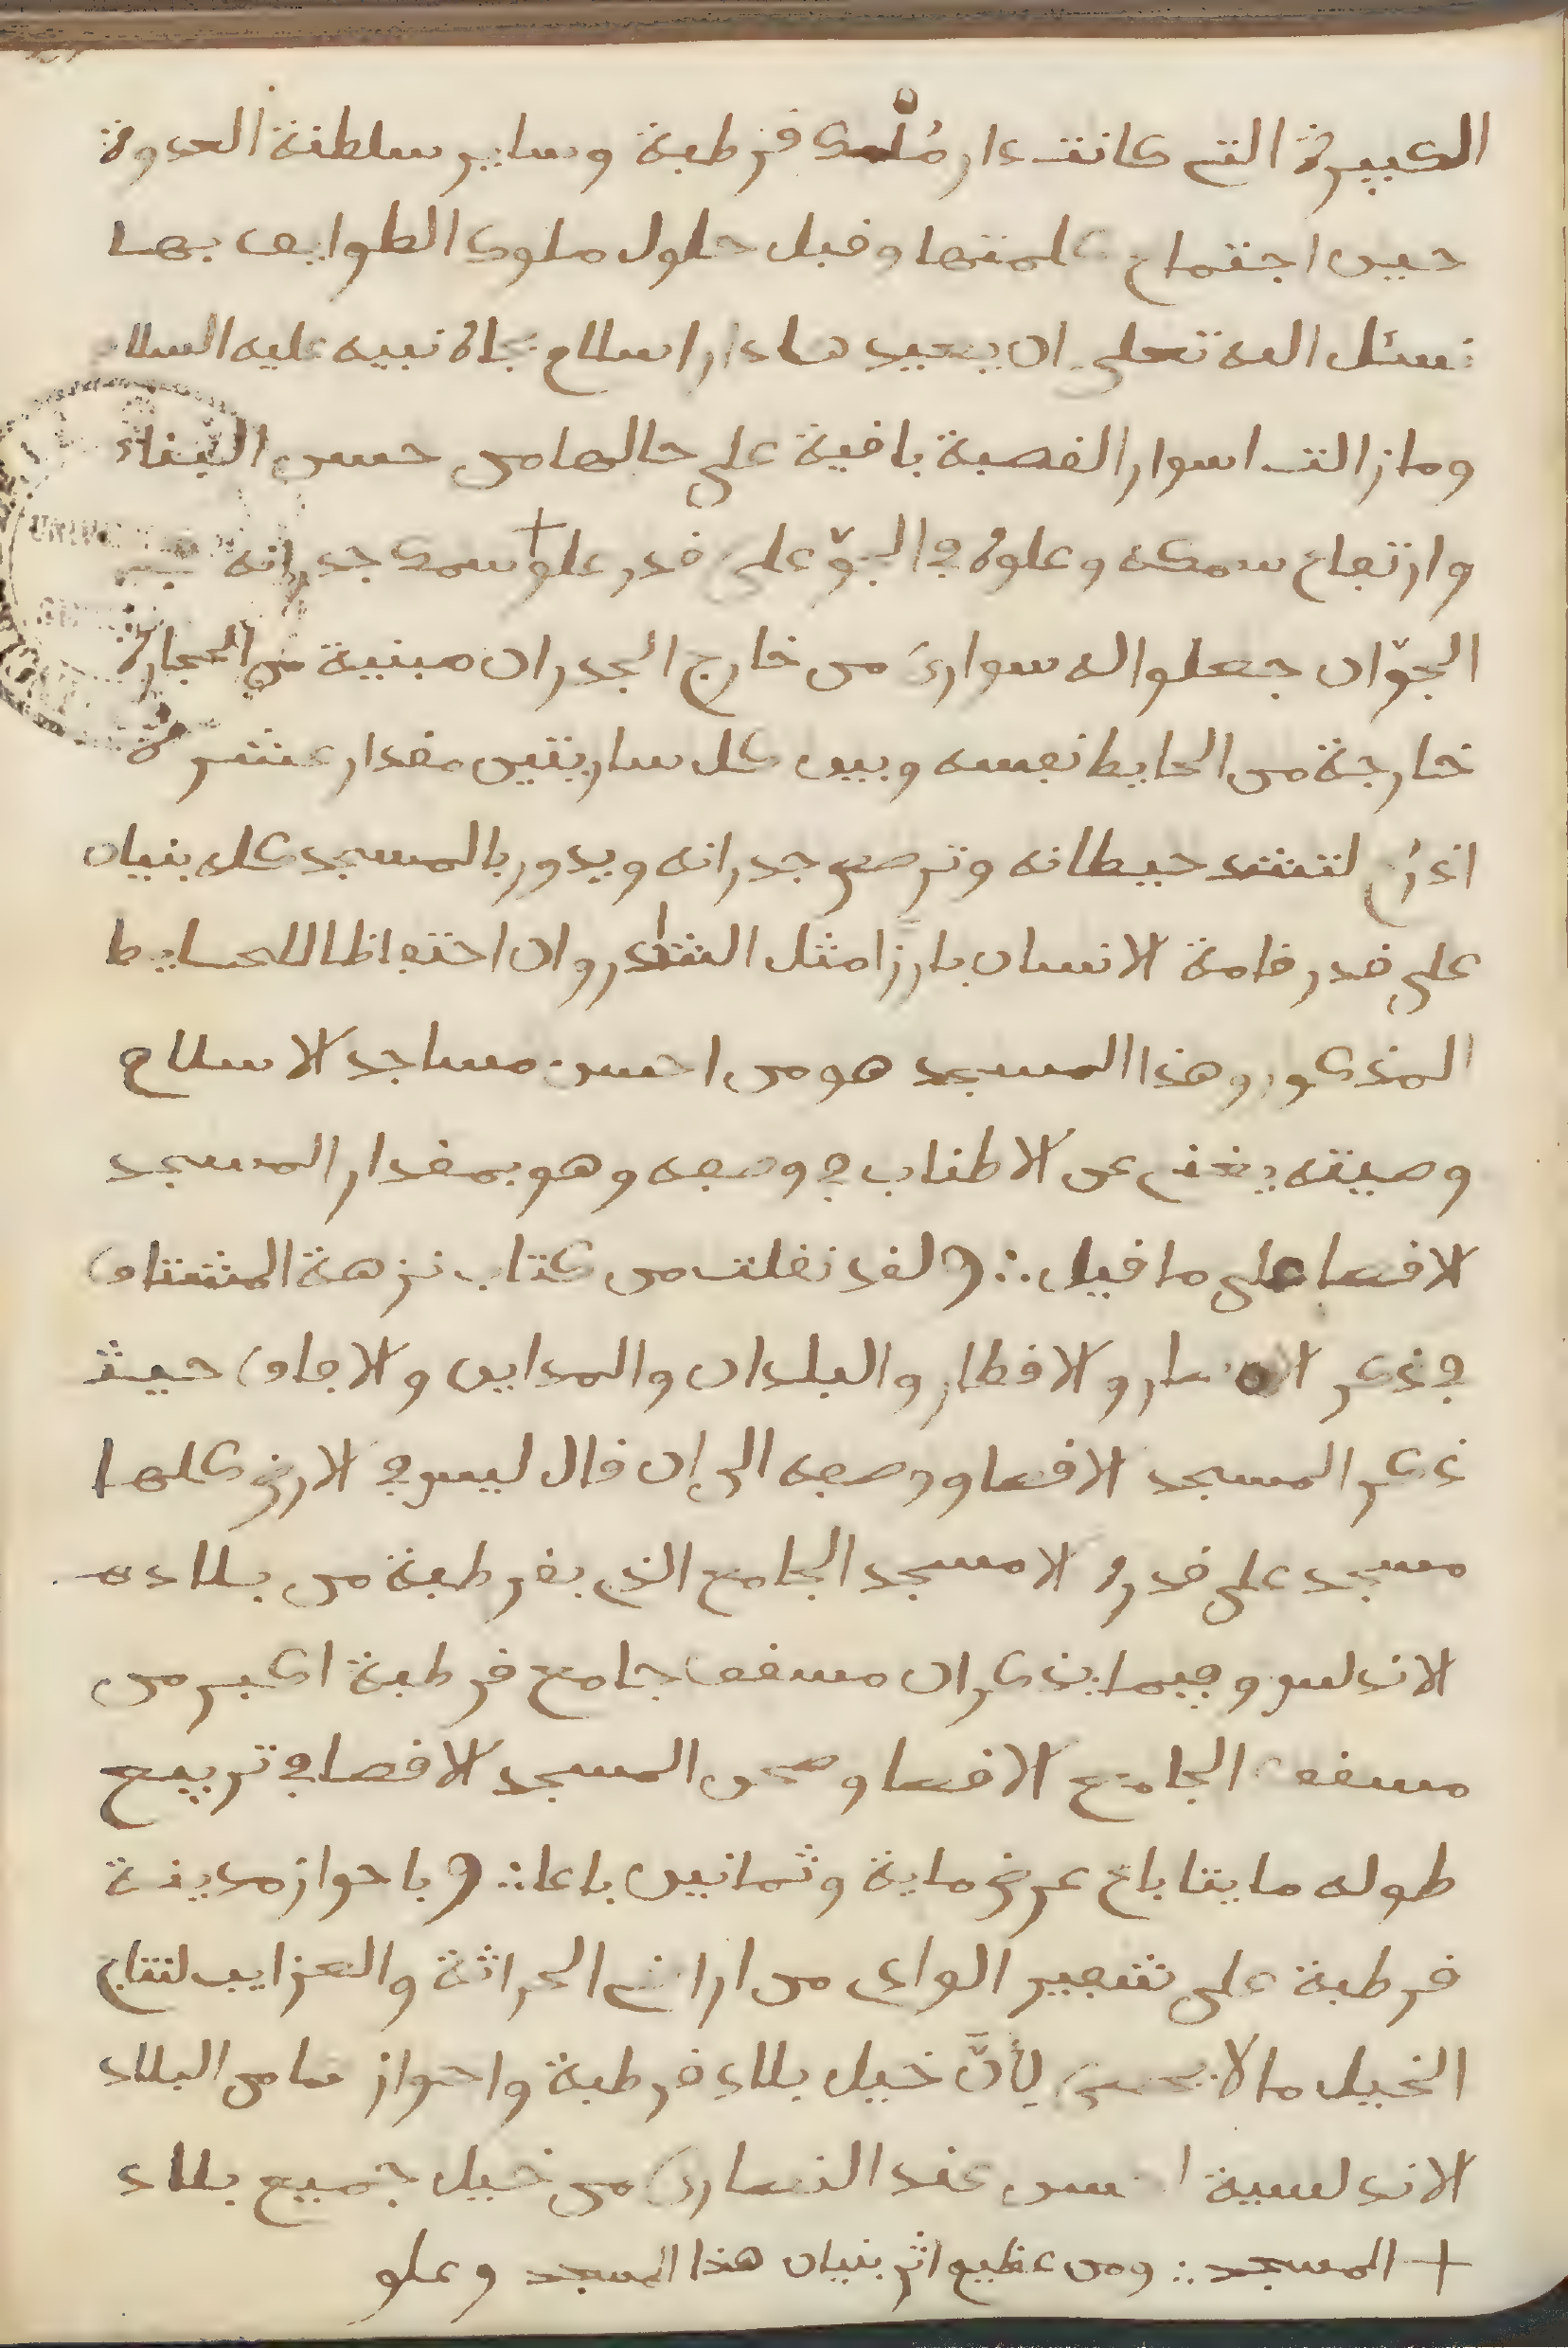 الكبيرة التي كانت دار مُلْك قرطبة وساير سلطنة العدوة
حين اجتماع كلمتها وقبل حلول ملوك الطوايف بها
نسئل الله تعلى ان يعيدها دار اسلام بجاه نبيه عليه السلام
ومازالت اسوار القصبة باقية على حالها من حسن البناء
وارتفاع سمكه وعلوه في الجوّ على قدر علو + سمك جدرانه في
الجوّ ان جعلوا له سوارى من خارج الجدران مبنية من الحجارة
خارجة من الحايط نفسه وبين كل ساريتين مقدار عشرة
اذرُع لتشد حيطانه وترصع جدرانه ويدور بالمسجد كله بنيان
على قدر قامة الانسان بارزا مثل الشادروان احتفاظا للحايط
المذكور وهذا المسجد هو من احسن مساجد الاسلام
وصيته يغني عن الاطناب في وصفه وهو بمقدار المسجد
الاقصا على ما قيل ∴ ولقد نقلت من كتاب نزهة المشتاق
في ذكر الامصار والاقطار والبلدان والمداين والافاق حيث
ذكر المسجد الاقصا ووصفه الى ان قال ليس في الارض كلها
مسجد على قدره الا مسجد الجامع الذي بقرطبة من بلاد
الاندلس وفيما يذكر ان مسقف جامع قرطبة اكبر من
مسقف الجامع الاقصا وصحن المسجد الاقصا في تربيع
طوله مايتا باع عرض ماية وثمانين باعا ∴ وباحواز مدينة
قرطبة على شفير الواد من اراضي الحراثة والعزايب لنتاج
الخيل ما لا يحصى لأنّ خيل بلاد قرطبة واحوازها من البلاد
الاندلسية احسن عند النصارى من خيل جميع بلاد
+ المسجد ∴ ومن عظيم اثر بنيان هذا المسجد وعلو